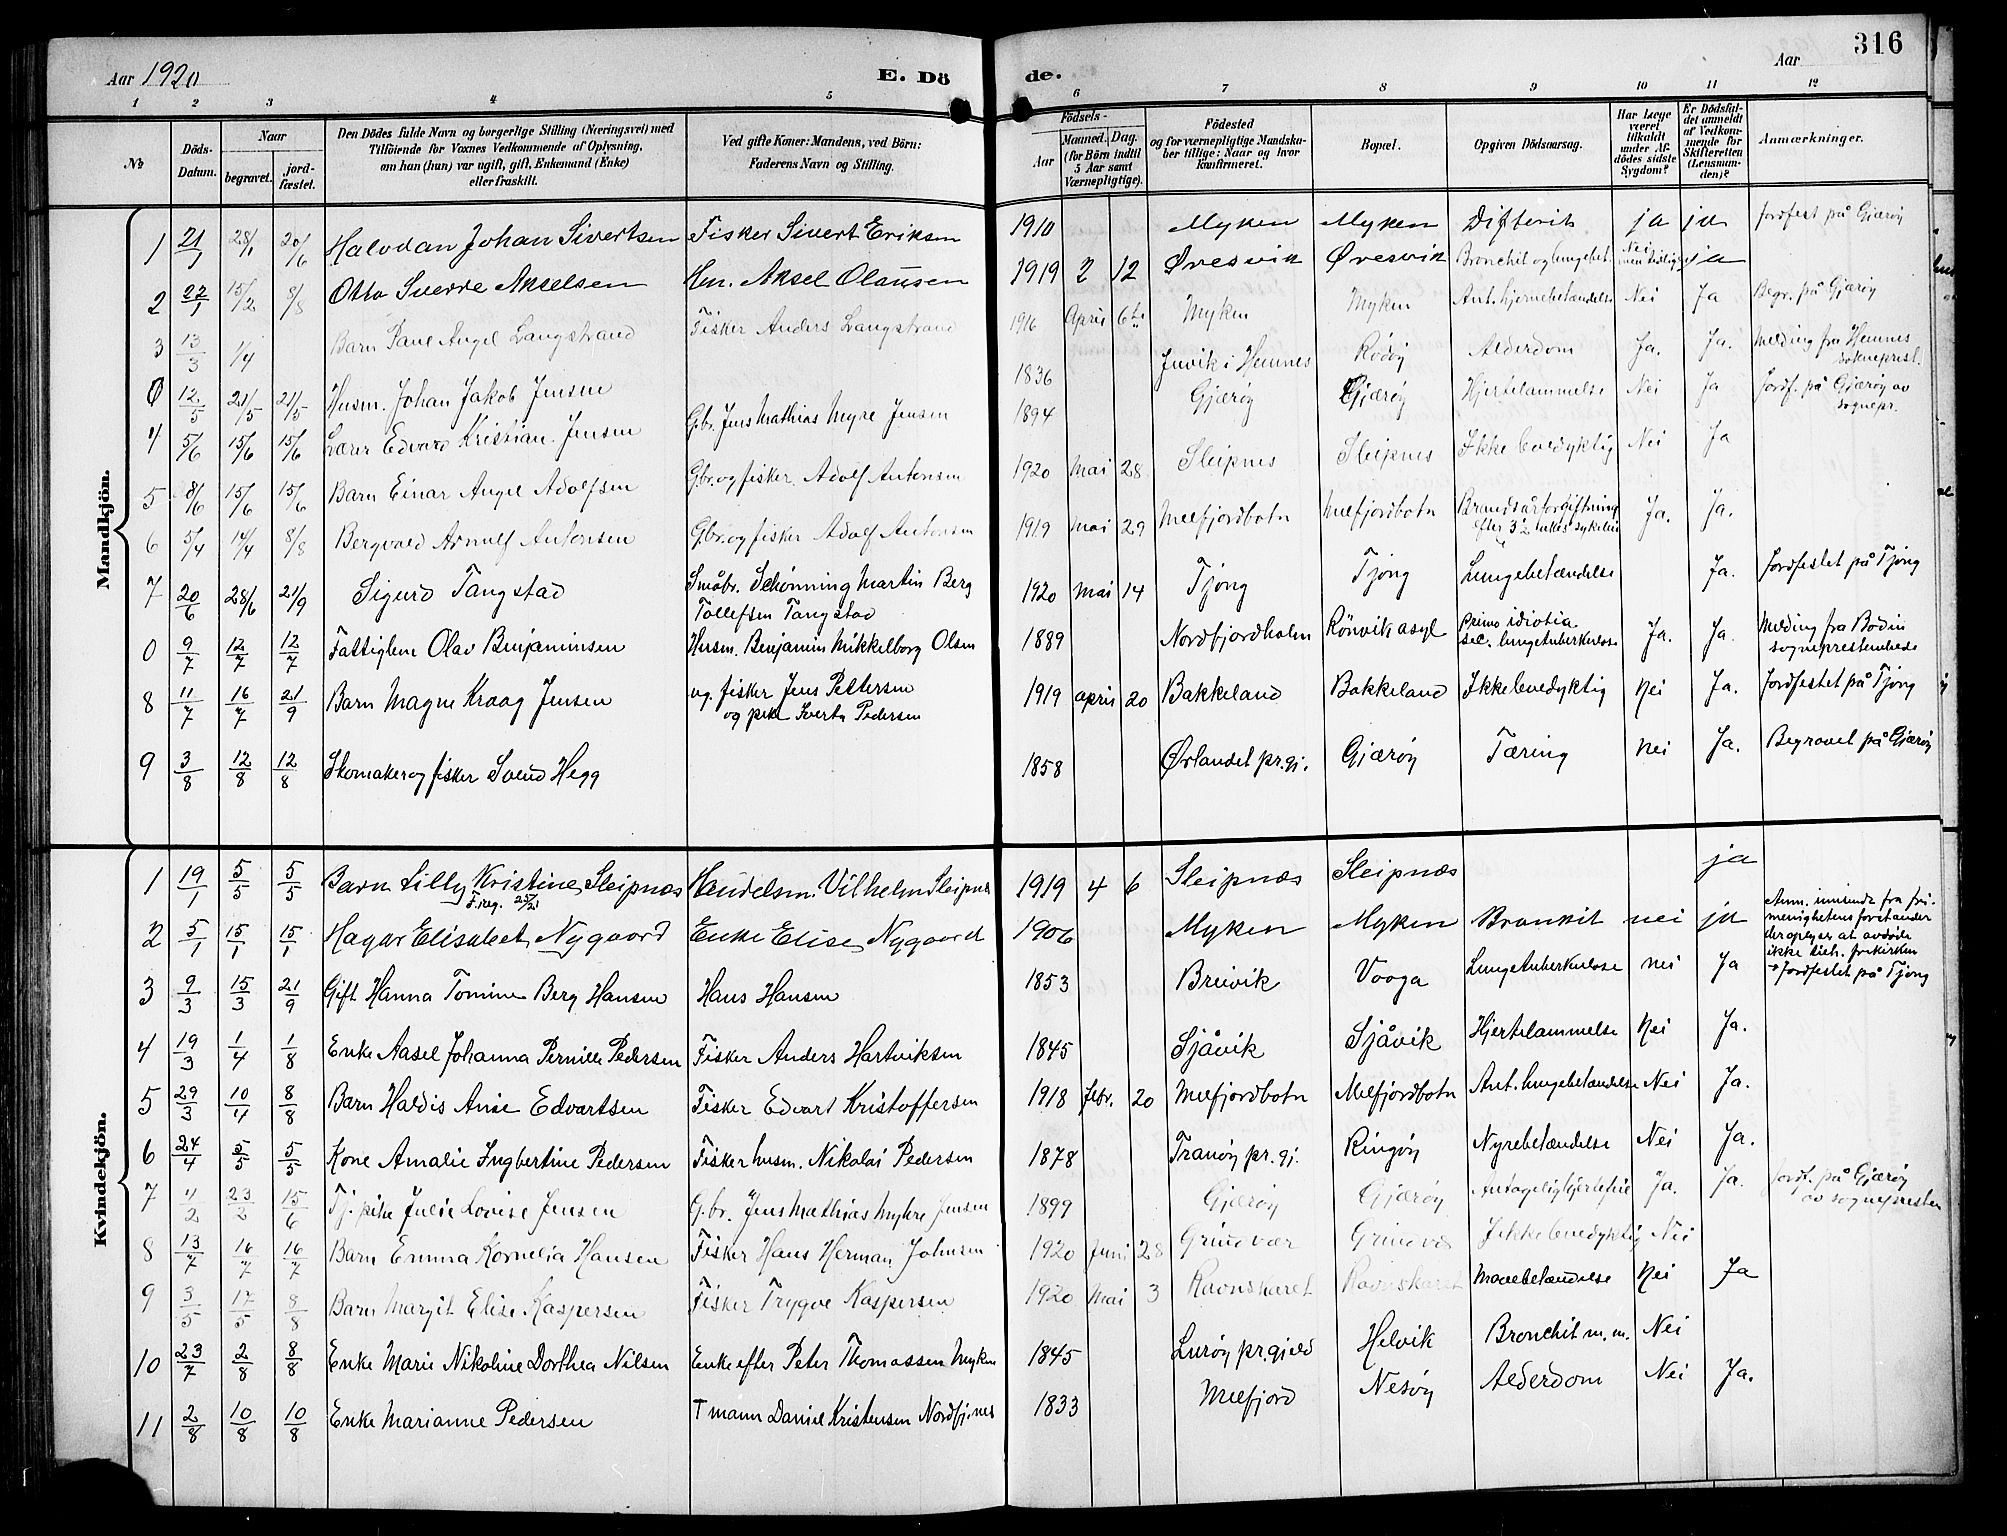 316
Aar 1920
E. Dö
de.
Aar
1 2 3 4 5 6 7 8 9 10 11 12
No
Döds-
Datum.
Naar
begravet.
jord-
fæstet.
Den Dödes fulde Navn og borgerlige Stilling (Næringsvei) med
Tilföiende for Voxnes Vedkommende af Oplysning,
om han (hun) var ugift, gift, Enkemand (Enke)
eller fraskilt.
Ved gifte Koner: Mandens, ved Börn:
Faderens Navn og Stilling.
Födsels-
Aar
Maaned. Dag.
(for Börn indtil
5 Aar samt
Værnepligtige).
Födested
og for værnepligtige Mandska-
ber tillige: Naar og hvor
konfirmeret.
Bopæl.
Opgiven Dödsaarsag.
Har Læge
været
tilkaldt
under Af-
dödes sidste
Sygdom?
Er Dödsfal-
det anmeldt
af Vedkom-
mende for
Skifteretten
(Lensman-
den)?
Anmærkninger.
Mandkjön.
1 21/1 28/1 20/6 Halvdan Johan Sivertsen Fisker Sivert Eriksen 1910 Myken Myken Difterit ja ja Jordfest på Gjærøy
2 22/1 15/2 8/8 Otto Sverre Akselsen Hm. Aksel Olausen 1919 2 12 Øresvik Øresvik Bronchit og lungebet. Nei ja
3 13/3 1/4 Barn Paul Angel Langstrand Fisker Anders Langstrand 1916 April 6te Myken Myken Ant. hjernebetændelse Nei Ja Begr. på Gjærøy
0 12/5 21/5 21/5 Husm. Johan Jakob Jensen 1836 Juvik i Hemnes Rødøy Alderdom Ja. Ja. Melding fra Hemnes
sokneprest.
4 5/6 15/6 15/6 Lærer Edvard Kristian Jensen G.br. Jens Mathias Myre Jensen 1894 Gjærøy Gjærøy Hjertelammelse Nei Ja Jordf. på Gjærøy av
sognepr.
5 8/6 15/6 15/6 Barn Einar Angel Adolfsen Gbr. og fisker Adolf Antonsen 1920 Mai 28 Sleipnes Sleipnes Ikke bevedyktig Nei Ja
6 5/4 14/4 8/8 Bergvald Arnulf Antonsen G.br. og fisker Adolf Antonsen 1919 Mai 29 Melfjordbotn Melfjordbotn Brandsårforgiftning
efter 3 1/2 ukes sykeleie Ja. Ja.
7 20/6 28/6 21/9 Sigurd Tangstad Småbr. Schønning Martin Berg
Tollefsen Tangstad 1920 Mai 14 Tjong Tjong Lungebetændelse Ja. Jordfestet på Tjong
0 9/7 12/7 12/7 Fattiglem Olav Benjaminsen Husm. Benjamin Mikkelborg Olsen 1889 Nordfjordholm Rönvik asyl Primo idiotia
sec. lungetuberkulose Ja. Ja. Melding fra Bodin
sogneprestembede
8 11/7 16/7 21/9 Barn Magne Kraag Jensen ug. fisker Jens Peltersen
og pike Iverta Pedersen 1919 april 20 Bakkeland Bakkeland Ikke bevedyktig Nei Ja. Jordfestet på Tjong
9 3/8 12/8 12/8 Skomaker og fisker Svend Hegg 1858 Ørlandet pr.gj. Gjærøy Tæring nei Ja. Begravet på Gjærøy
Kvindekjön.
1 19/1 5/5 5/5 Barn Lilly Kristine Sleipnæs Handelsm. Vilhelm Sleipnæs 1919 4 6 Sleipnæs Sleipnæs ja
2 5/1 15/1 15/1 Hagar Elisabet Nygaard Enke Elise Nygaard 1906 Myken Myken Bronkit nei ja Anm. innsendt fra fri-
menighetens forstander
der opgir at avdøde
ikke tilh. frikirken
3 9/3 15/3 21/9 Gift Hanna Tomine Berg Hansen Hans Hansen 1853 Breivik Vooga Lungetuberkulose nei Ja Jordfestet på Tjong
4 19/3 1/4 1/8 Enke Aasel Johanna Pernille Pedersen Fisker Anders Hartviksen 1845 Sjåvik Sjåvik Hjertelammelse Nei Ja.
5 29/3 10/4 8/8 Barn Haldis Anie Edvartsen Fisker Edvart Kristoffersen 1918 febr. 20 Melfjordbotn Melfjordbotn Ant. lungebetændelse Nei Ja.
6 24/4 5/5 5/5 Kone Amalie Ingbertine Pedersen Fisker husm. Nikolai Pedersen 1878 Tranøy pr.gj. Ringøy Nyrebetændelse Nei Ja.
7 4/2 23/2 15/6 Tj. pike Julie Lovise Jensen G.br. Jens Mathias Myhre Jensen 1899 Gjærøy Gjærøy Antagelig hjertefeil Ja. Ja. Jordf. på Gjærøy
av sognepresten
8 13/7 16/7 16/7 Barn Emma Kornelia Hansen Fisker Hans Herman Johnsen 1920 Juni 28 Grindvær Grindvær Ikke bevedyktig Nei
9 3/5 17/5 8/8 Barn Margit Elise Kaspersen Fisker Trygve Kaspersen 1920 Mai 3 Ravnskaret Ravnskaret Mavebetændelse Nei Ja
10 23/7 2/8 8/8 Enke Marie Nikoline Dorthea Nilsen Enke efter Peter Thomassen Myken 1845 Lurøy pr.gjeld Helvik Bronchit m.m. Nei
11 2/8 10/8 10/8 Enke Marianne Pedersen † mann Daniel Kristensen Nordfj.nes 1833 Melfjord Nesøy Alderdom Nei Ja.